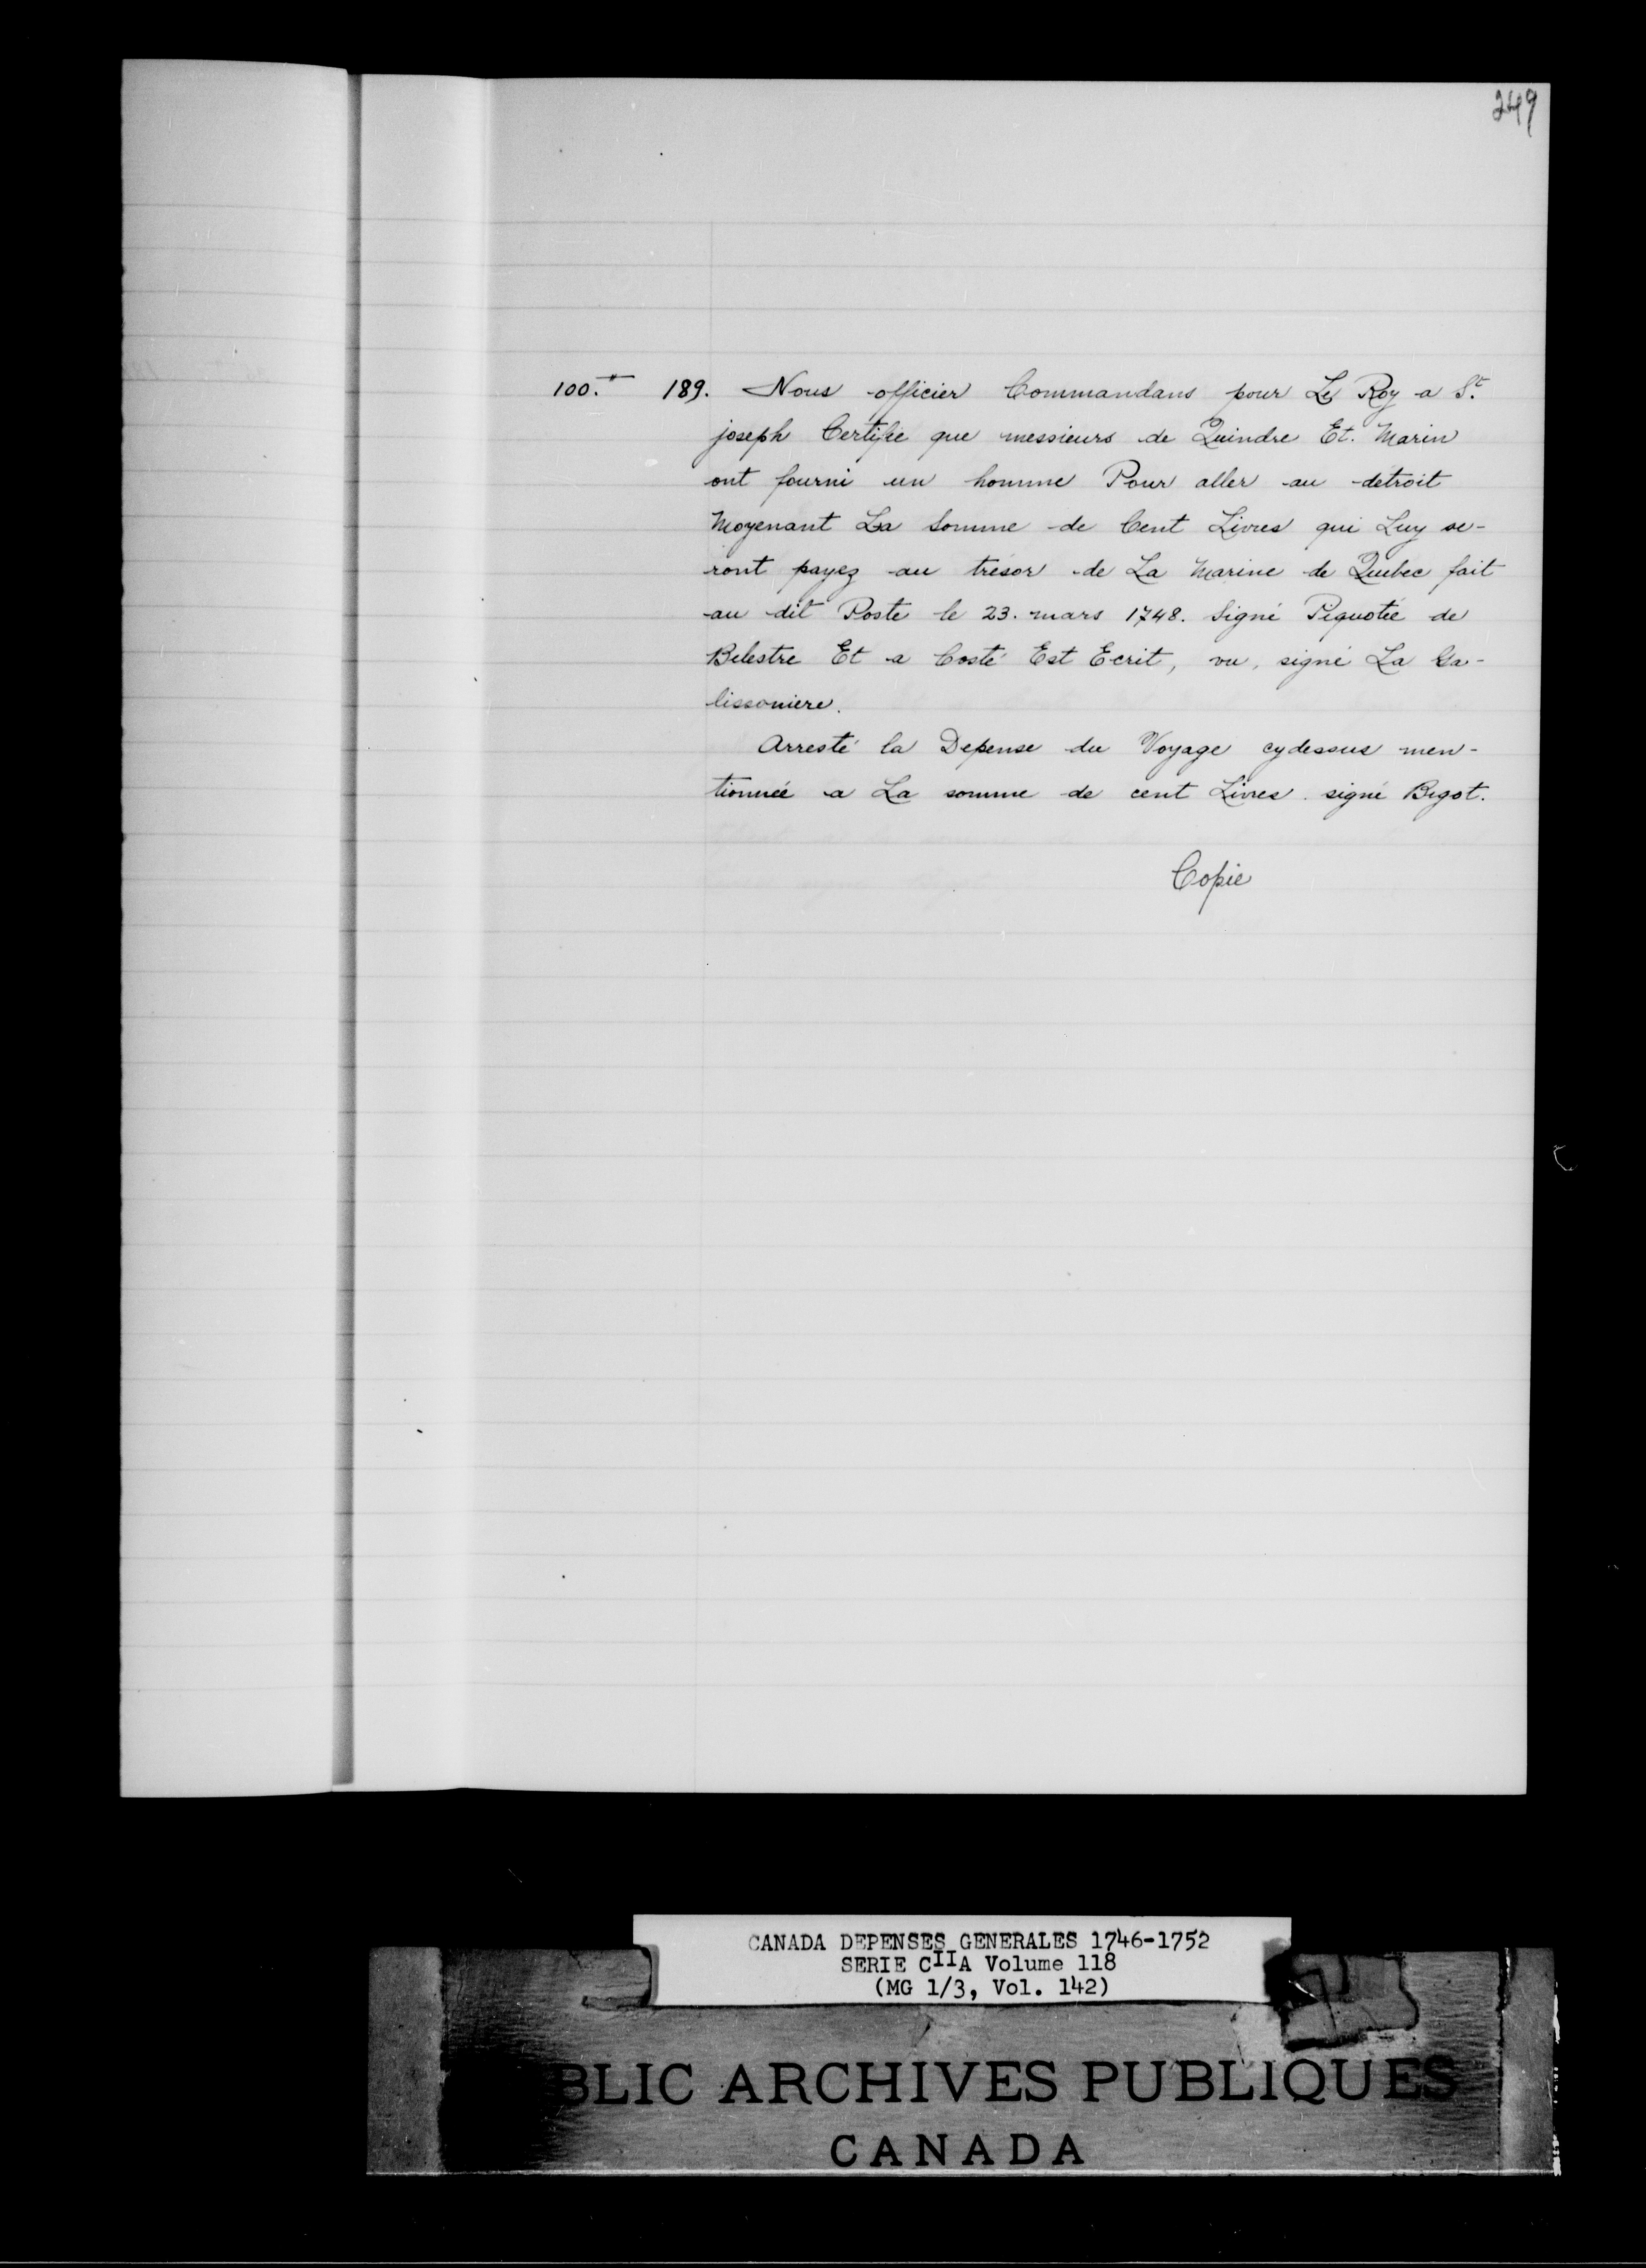 249
100.# 189. Nous officier Commandans pour Le Roy a St.
joseph Certifie que messieurs de Quindre Et. Marin
ont fourni un homme Pour aller au détroit
Moyenant La Somme de Cent Livres qui Luy se-
ront payez au trésor de La Marine de Quebec fait
au dit Poste le 23. mars 1748. Signé Piquotée de
Belestre Et a Costé Est Ecrit, vu, signé La Ga-
lissoniere.
Arresté la Depense du Voyage cydessus men-
tionnée a La somme de cent Livres. signé Bigot.
Copie
CANADA DEPENSES GENERALES 1746-1752
SERIE CIIA Volume 118
(MG 1/3, Vol. 142)
BLIC ARCHIVES PUBLIQUES
CANADA